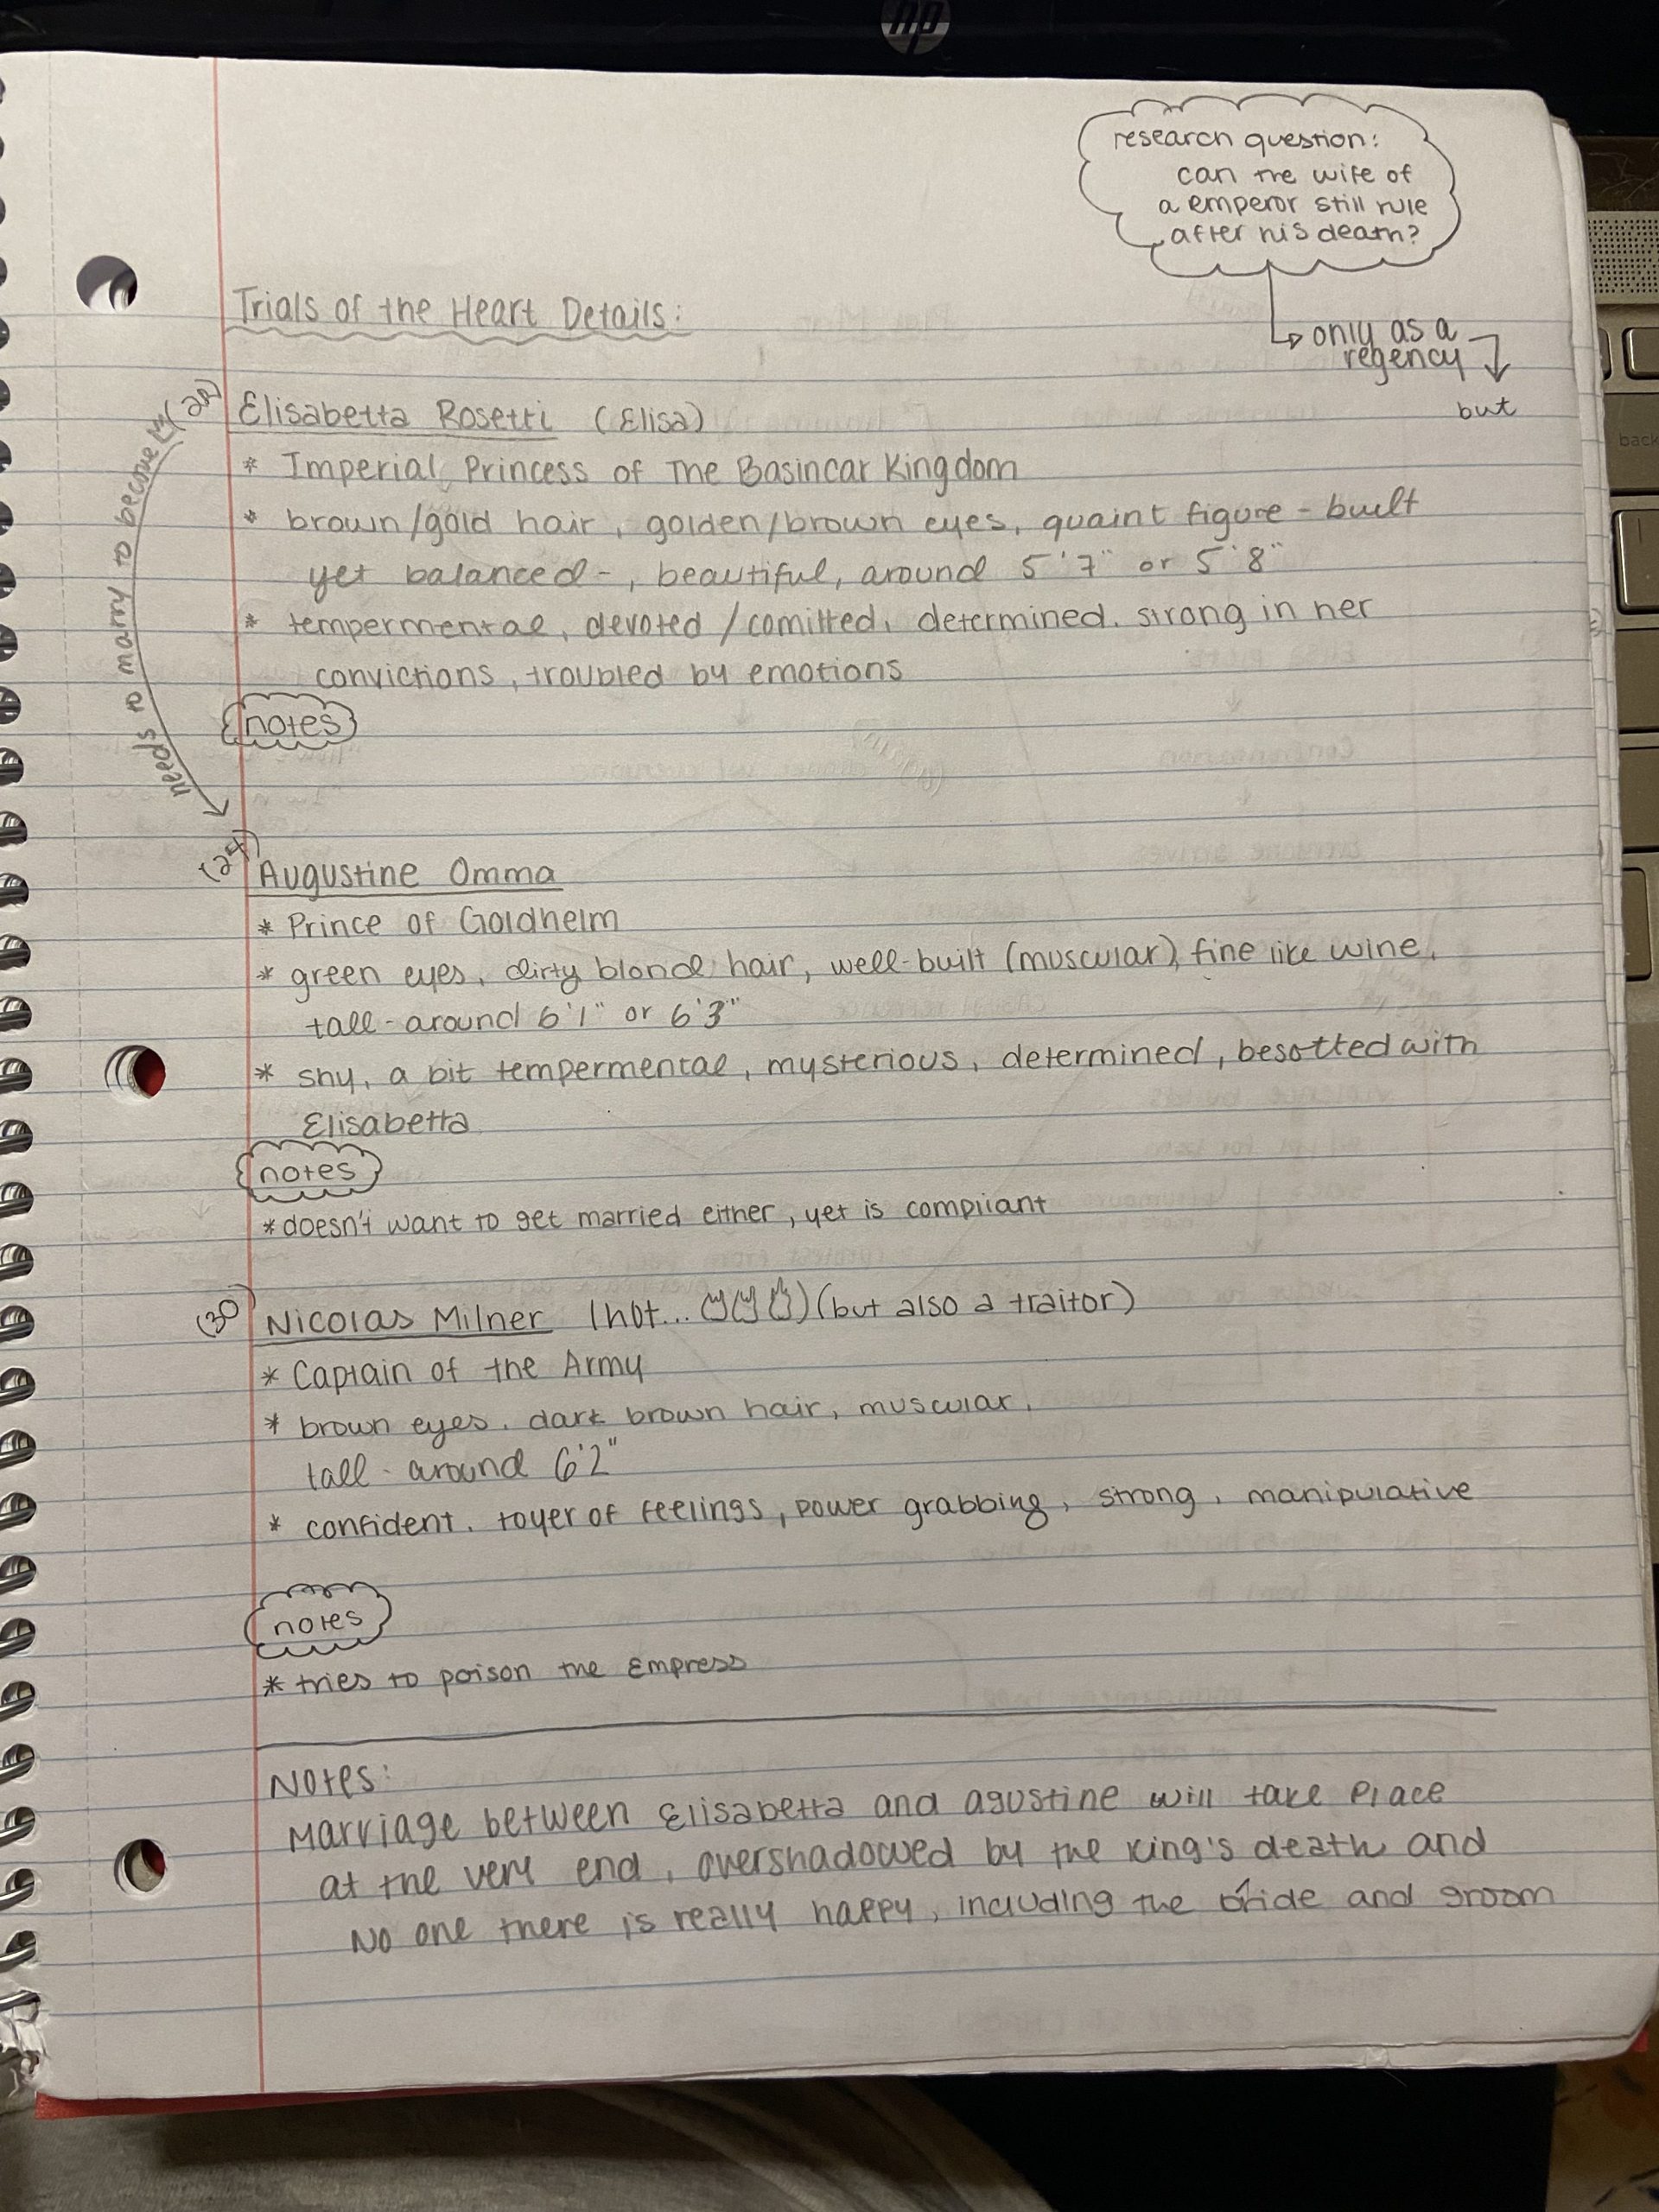 hp
research question:
can the wife of
a emperor still rule
after his death?
only as a
regency
but
Trials of the Heart Details:
needs to marry to become
Elisabetta Rosetti (Elisa)
* Imperial Princess of The Basincar Kingdom
* brown/gold hair, golden/brown eyes, quaint figure - built
yet balanced -, beautiful, around 5'7" or 5'8"
* tempermental, devoted/comitted, determined, strong in her
convictions, troubled by emotions
notes
(24) Augustine Omma
* Prince of Goldhelm
* green eyes, dirty blond hair, well-built (muscular), fine like wine,
tall - around 6'1" or 6'3"
* shy, a bit tempermental, mysterious, determined, besotted with
Elisabetta
notes
* doesn't want to get married either, yet is compliant
(30) Nicolas Milner (hot... ) (but also a traitor)
* Captain of the Army
* brown eyes, dark brown hair, muscular,
tall - around 6'2"
* confident, toyer of feelings, power grabbing, strong, manipulative
notes
* tries to poison the Empress
Notes:
Marriage between Elisabetta and agustine will take place
at the very end, overshadowed by the king's death and
No one there is really happy, including the bride and groom